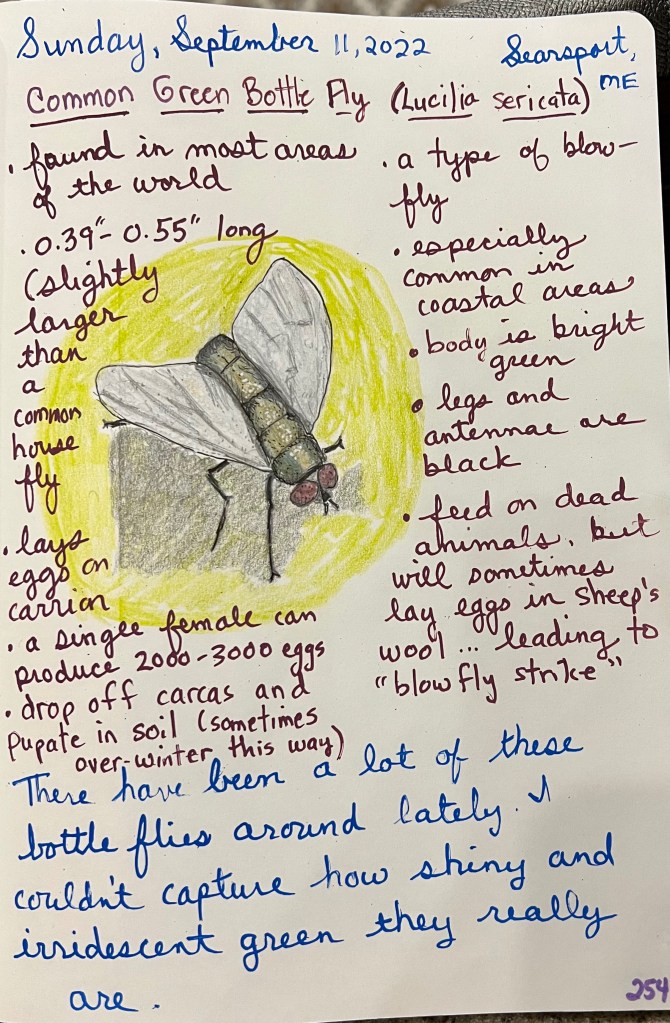 Sunday, September 11, 2022
Searsport, ME
Common Green Bottle Fly (Lucilia sericata)
• found in most areas
of the world
• 0.39"- 0.55" long
(slightly
larger
than
a
common
house
fly
• lays
eggs on
carrion
• a single female can
produce 2000-3000 eggs
• drop off carcas and
pupate in soil (sometimes
over-winter this way)
• a type of blow-
fly
• especially
common in
coastal areas
• body is bright
green
• legs and
antennae are
black
• feed on dead
animals, but
will sometimes
lay eggs in sheep's
wool ... leading to
"blowfly strike"
There have been a lot of these
bottle flies around lately. I
couldn't capture how shiny and
irridescent green they really
are.
254